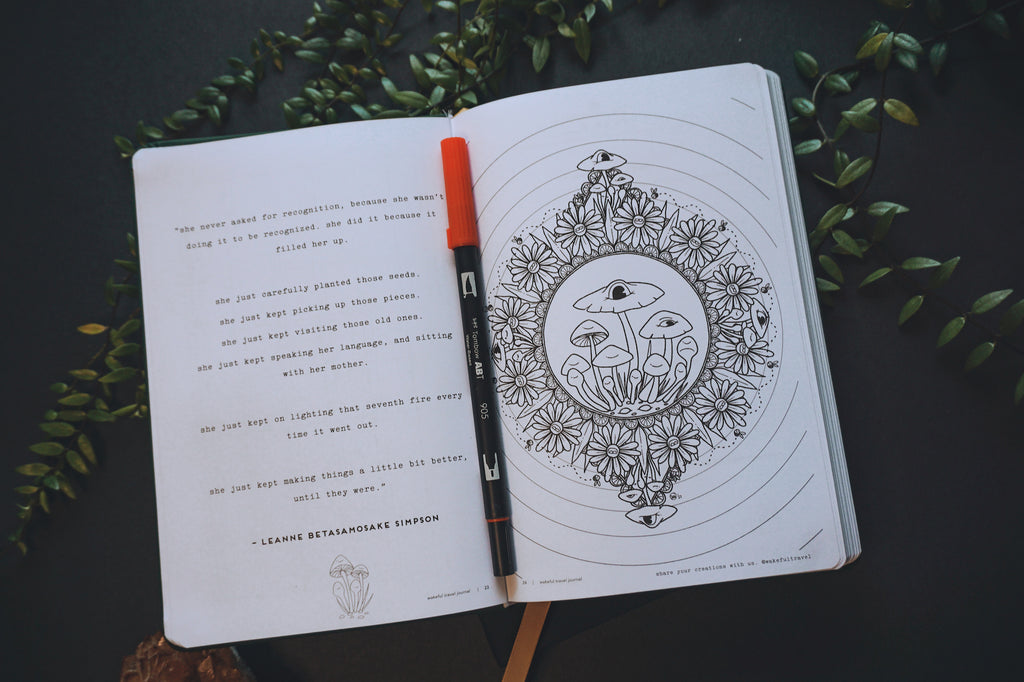 "she never asked for recognition, because she wasn't
doing it to be recognized. she did it because it
filled her up.
she just carefully planted those seeds.
she just kept picking up those pieces.
she just kept visiting those old ones.
she just kept speaking her language, and sitting
with her mother.
she just kept on lighting that seventh fire every
time it went out.
she just kept making things a little bit better,
until they were."
– LEANNE BETASAMOSAKE SIMPSON
wakeful travel journal | 25
Tombow ABT
905
26 | wakeful travel journal
share your creations with us. @wakefultravel